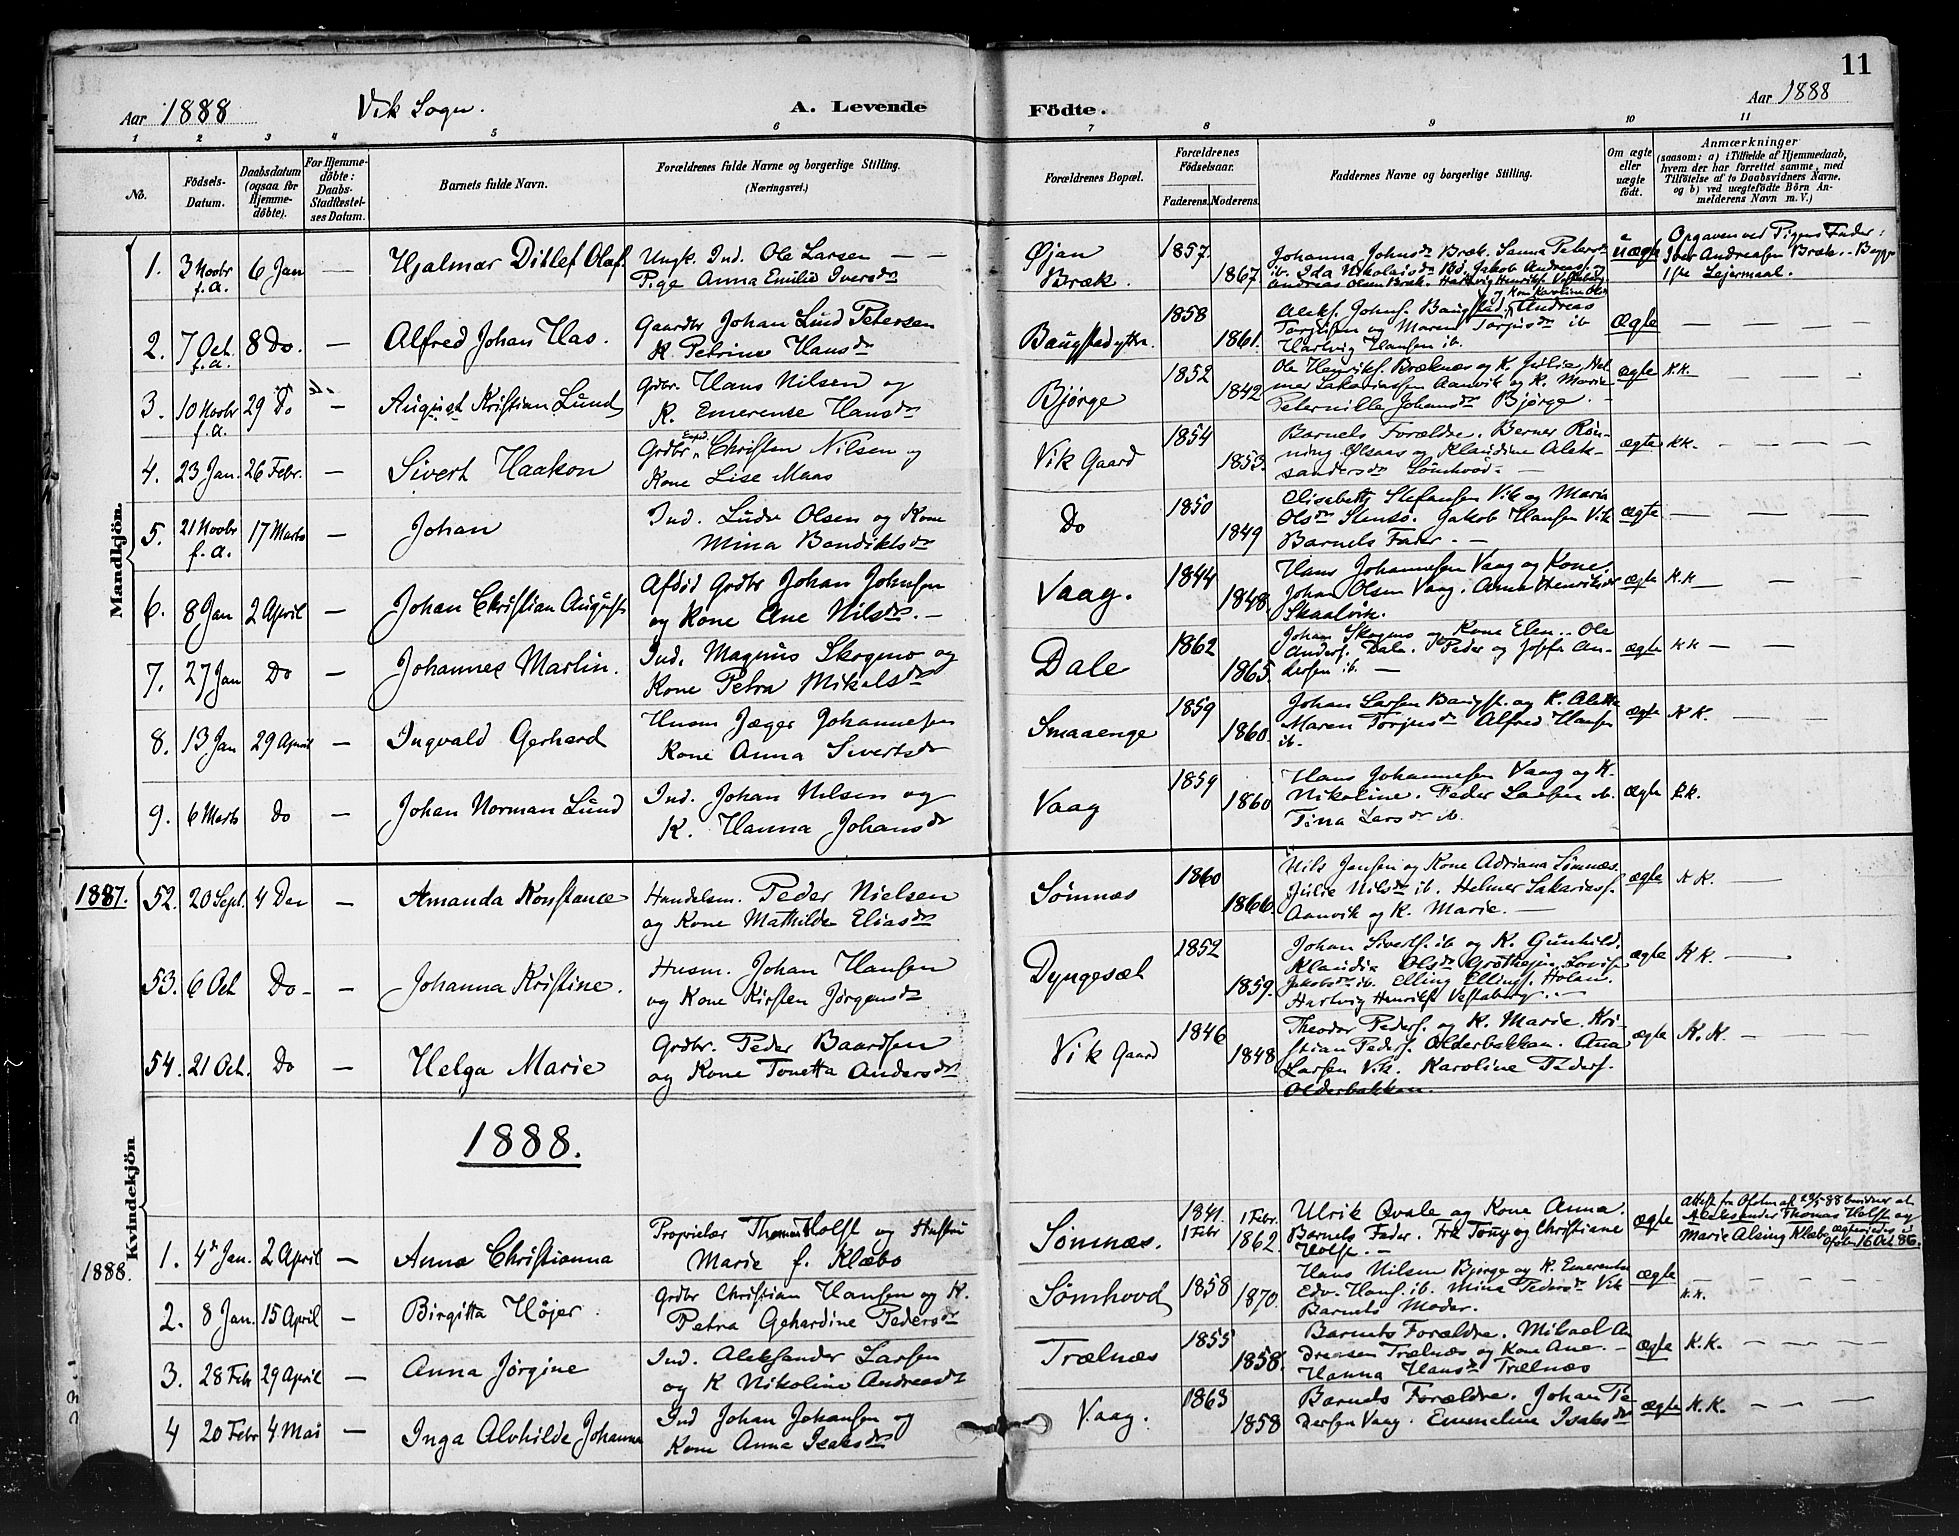 11
Aar 1888 Vik Sogn. A. Levende Födte. Aar 1888
1 2 3 4 5 6 7 8 9 10 11
No.
Födsels-Datum.
Daabsdatum (ogsaa for Hjemme-døbte).
For Hjemme-døbte: Daabs-Stadfæstel-ses Datum.
Barnets fulde Navn.
Forældrenes fulde Navne og borgerlige Stilling. (Næringsvei.)
Forældrenes Bopæl.
Forældrenes Födselsaar.
Faderens. Moderens.
Faddernes Navne og borgerlige Stilling.
Om ægte eller uægte födt.
Anmærkninger
(saasom: a) i Tilfælde af Hjemmedaab, hvem der har forrettet samme, med Tilföielse af to Daabsvidners Navne, og b) ved uegtefödte Börn An-melderens Navn m. V.)
Mandkjön.
1. 3 Novbr f.a. 6 Jan — Hjalmar Ditlef Olaf. Ungk. Ind. Ole Larsen — —
Pige Anna Emilie Iversdr
Øjan Bræk. 1857. 1867.
Johanna Johnsdr Bræk. Sanna Petersdr
ib. Ida Nikolaisdr Bø. Jakob Andreas. og
Andreas Olsen Bræk. Hartvig Henriks. Vestaberg
uægte Opgaven ved Pigens Fader:
Iver Andreasen Bræk. Begges
1ste Lejermaal.
2. 7 Oct. f.a. 8 Do. — Alfred Johan Has. Gaardbr Johan Lund Petersen
K Petrine Hansdr
Baugstadyttre. 1858 1861.
og Kone Karoline Ols
Aleks. Johns. Baugstad, Andreas
Torgusen og Maren Torjusdr ib
Hartvig Hansen ib.
Ægte — — — —
3. 10 Novbr f.a. 29 Do — August Kristian Lund Grdbr. Hans Nilsen og
K. Emerense Hansdr
Bjørge 1852 1842
Ole Henriks. Bræknæs og K. Julie, Hel
mer Sakariassen Aanvik og K. Marie
Peternille Johansdr Bjørge. —
ægte K.K. — — —
4. 23 Jan. 26 Febr. — Sivert Haakon Grdbr Exped. Christen Nilsen og
Kone Lise Maas
Vik Gaard 1854 1853.
Barnets Forældre. Berner Røn-
ning Olsaas og Klaudine Alek-
sandersdr Sømhovd. —
ægte KK. — — — —
5. 21 Novbr f.a. 17 Marts — Johan Ind. Ludv Olsen og Kone
Mina Bendiktsdr
Do 1850 1849
Elisabeth Stefansen Vik og Marie
Olsdr Stensø. Jakob Hansen Vik
Barnets Fader. —
ægte — — — —
6. 8 Jan 2 April — Johan Christian August Afdød Grdbr Johan Johnsen
og Kone Ane Nilsdr. —
Vaag. 1844 1848.
Hans Johannesen Vaag og Kone.
Johan Olsen Vaag. Anna Henriksdr
Skaalvik.
ægte K.K — — —
7. 27 Jan Do — Johannes Martin. Ind. Magnus Skogmo og
Kone Petra Mikalsdr
Dale 1862 1865.
Johan Skogmo og Kone Elen.. Ole
Anders. Dale. Peder og Josefa An-
dersen ib. —
ægte KK — — —
8. 13 Jan 29 April — Ingvald Gerhard Husm Jæger Johannesen
Kone Anna Sivertsdr
Smaaenge 1859 1860.
Johan Larsen Baugst. og K. Aletta
Maren Torjusdr Alfred Hansen
ib.
ægte K K. — — —
9. 6 Marts Do — Johan Norman Lund Ind. Johan Nilsen og
K. Hanna Johansdr
Vaag 1859 1860
Hans Johannesen Vaag og K.
Nikoline. Peder Larsen ib.
Tina Larsdr ib.
ægte K.K. — — —
1887. 52. 20 Sept. 4 Dec — Amanda Konstance Handelsm. Peder Nielsen
og Kone Mathilde Eliasdr
Sømnæs 1860 1866.
Nils Jensen og Kone Adriana Sømnæs
Julie Nilsdr ib. Helmer Sakarias.
Aanvik og K. Marie. —
ægte K K. —
53. 6 Oct Do — — Johanna Kristine. Husm. Johan Hansen
og Kone Kirsten Jørgensdr
Dyngesæt 1852 1859.
Johan Siverts. ib og K. Gunhild.
Klaudia Olsdr Grøthejm. Lovis
Jakobsdr ib. Elling Ellings. Holan.
Hartvig Henriks Vestaberg. —
ægte K K. —
54. 21 Oct. Do — Helga Marie Grdbr. Peder Baardsen
og Kone Tonetta Andersdr
Vik Gaard 1846 1848
Theodor Peders. og K. Marie. Kri-
stian Peders. Olderbakkan. Ana
Larsen Vik. Karoline Peders.
Olderbakkan.
ægte K. K. — — —
Kvindekjön
1888.
1888. 1. 4de Jan. 2 April — Anna Christianna Proprietær Thomas Holst og Hustru
Marie f. Klæbo
Sømnæs. 1841 1 Febr 1 Febr. 1862
Ulrik Qvale og Kone Anna.
Barnets Fader. Frk Tony og Christiane
Holst. —
ægte Attest fra 88 bevidner at
Aleksander Thomas Holst og
Marie Alsing Klæbo ægteviedes i
16 Oct 86.
2. 8 Jan. 15 April — Birgitta Højer Grdbr Christian Hansen og K.
Petra Gehardine Pedersdr
Sømhovd 1858 1870.
Hans Nilsen Bjørge og K. Emerentse
Edv. Hans. ib. Mina Pedersdr Vik
Barnets Moder.
ægte K.K. — — —
3. 28 Febr 29 April — Anna Jørgine Ind. Aleksander Larsen
og K Nikoline Andreasdr
Trælnæs 1855 1858.
Barnets Forældre. Mikael An
dreasen Trælnæs og Kone Ane. —
Hanna Hansdr Trælnæs
ægte K.K. — — —
4 20 Febr 4 Mai — Inga Alvhilde Johanna Ind Johan Johansen og
Kone Anna Isaksdr
Vaag. 1863 1858
Barnets Forældre. Johan Pe
dersen Vaag. Emmeline Isaksdr
ægte K.K. — — —